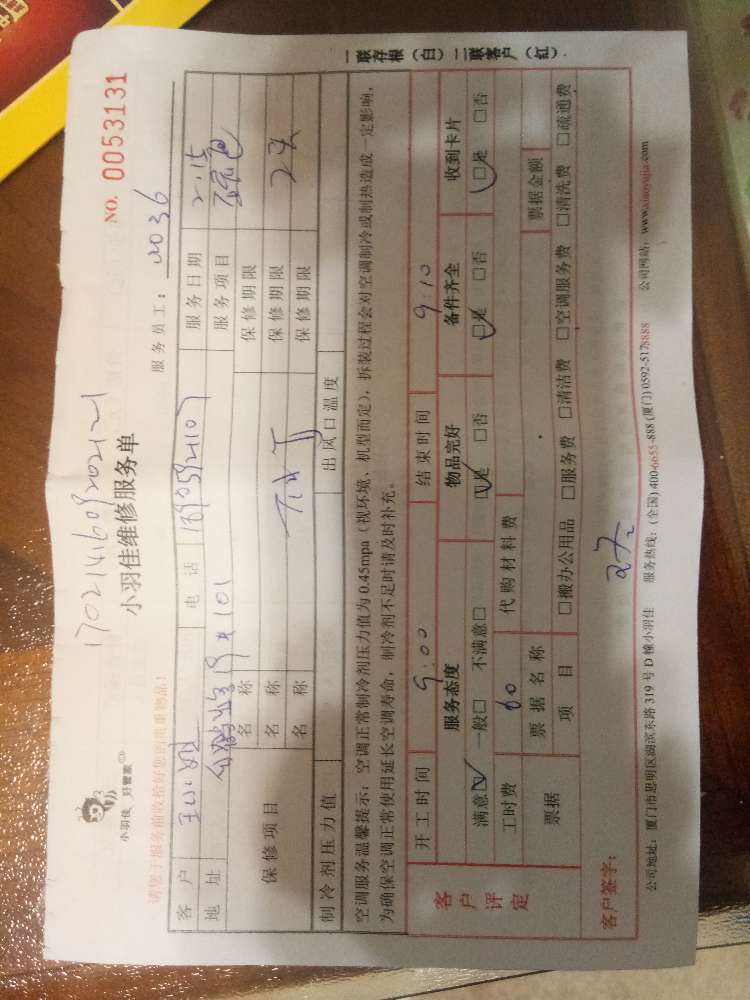 一联存根（白）二联客户（红）.
NO. 0053131
小羽佳 好管家
小羽佳维修服务单
服务员工：
请您于服务前收拾好您的贵重物品！
客户 电话 服务日期 2.15
地址 101 服务项目
保修项目 名称 保修期限
名称 保修期限
名称 保修期限
制冷剂压力值 出风口温度
空调服务温馨提示：空调正常制冷剂压力值为0.45mpa（视环境、机型而定），拆装过程会对空调制冷或制热造成一定影响，
为确保空调正常使用延长空调寿命，制冷剂不足时请及时补充。
客户评定 开工时间 9:00 结束时间 9:10
服务态度 物品完好 备件齐全 收到卡片
满意☑ 一般□ 不满意□ ☑是 □否 ☑是 □否 ☑是 □否
工时费 60 代购材料费
票据 票据名称 票据金额
项目 □搬办公用品 □服务费 □清洁费 □空调服务费 □清洗费 □疏通费
客户签字：
公司地址：厦门市思明区湖滨东路319号D栋小羽佳 服务热线：(全国) 400-6655-888 (厦门) 0592-5178888 公司网站：www.xiaoyujia.com